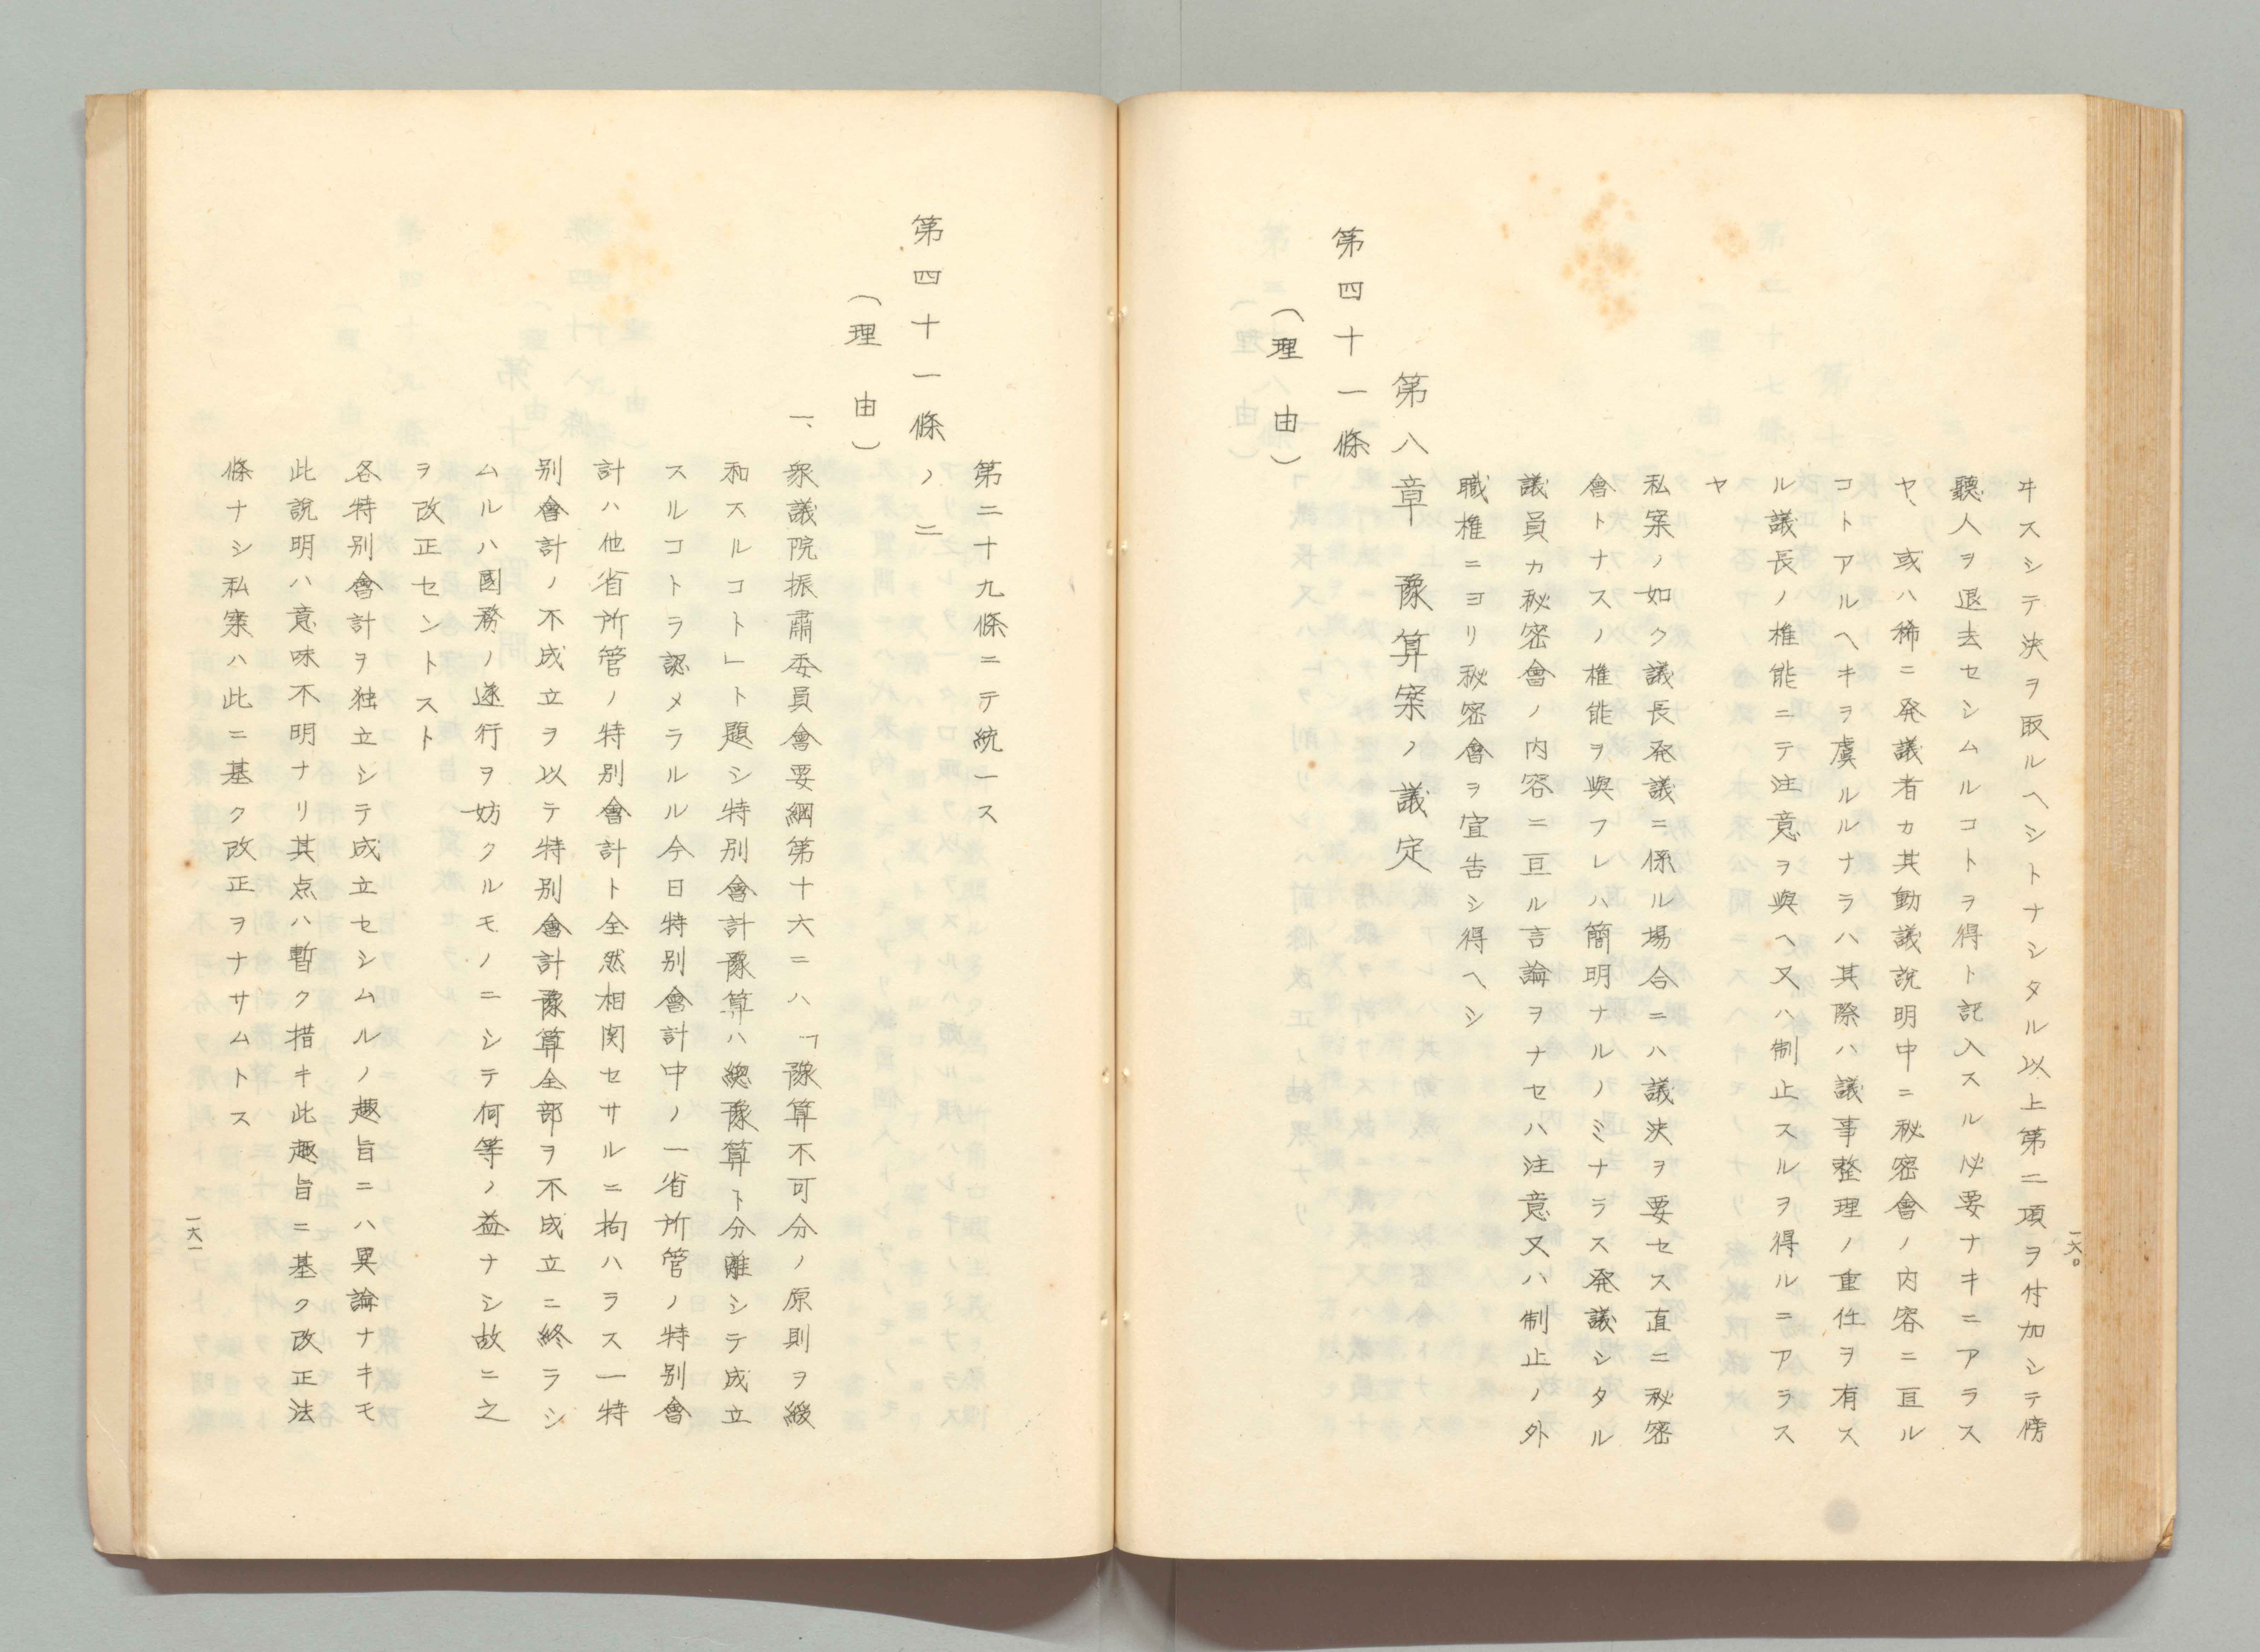 ヰスシテ決ヲ取ルヘシトナシタル以上第二項ヲ付加シテ傍
聽人ヲ退去セシムルコトヲ得ト記入スル必要ナキニアラス
ヤ、或ハ稀ニ発議者カ其動議説明中ニ秘密會ノ内容ニ亘ル
コトアルヘキヲ虞ルルナラハ其際ハ議事整理ノ重任ヲ有ス
ル議長ノ権能ニテ注意ヲ與ヘ又ハ制止スルヲ得ルニアラス
ヤ
私案ノ如ク議長発議ニ係ル場合ニハ議決ヲ要セス直ニ秘密
會トナスノ権能ヲ與フレハ簡明ナルノミナラス発議シタル
議員カ秘密會ノ内容ニ亘ル言論ヲナセハ注意又ハ制止ノ外
職権ニヨリ秘密會ヲ宣告シ得ヘシ
第八章 豫算案ノ議定
第四十一條
(理由)
一六〇
第二十九條ニテ統一ス
第四十一條ノ二
(理由)
一、衆議院振肅委員會要綱第十六ニハ「豫算不可分ノ原則ヲ緩
和スルコト」ト題シ特別會計豫算ハ總豫算ト分離シテ成立
スルコトヲ認メラルル今日特別會計中ノ一省所管ノ特別會
計ハ他省所管ノ特別會計ト全然相関セサルニ拘ハラス一特
別會計ノ不成立ヲ以テ特別會計豫算全部ヲ不成立ニ終ラシ
ムルハ國務ノ遂行ヲ妨クルモノニシテ何等ノ益ナシ故ニ之
ヲ改正セントスト
各特別會計ヲ独立シテ成立セシムルノ趣旨ニハ異論ナキモ
此説明ハ意味不明ナリ其点ハ暫ク措キ此趣旨ニ基ク改正法
條ナシ私案ハ此ニ基ク改正ヲナサムトス
一六一